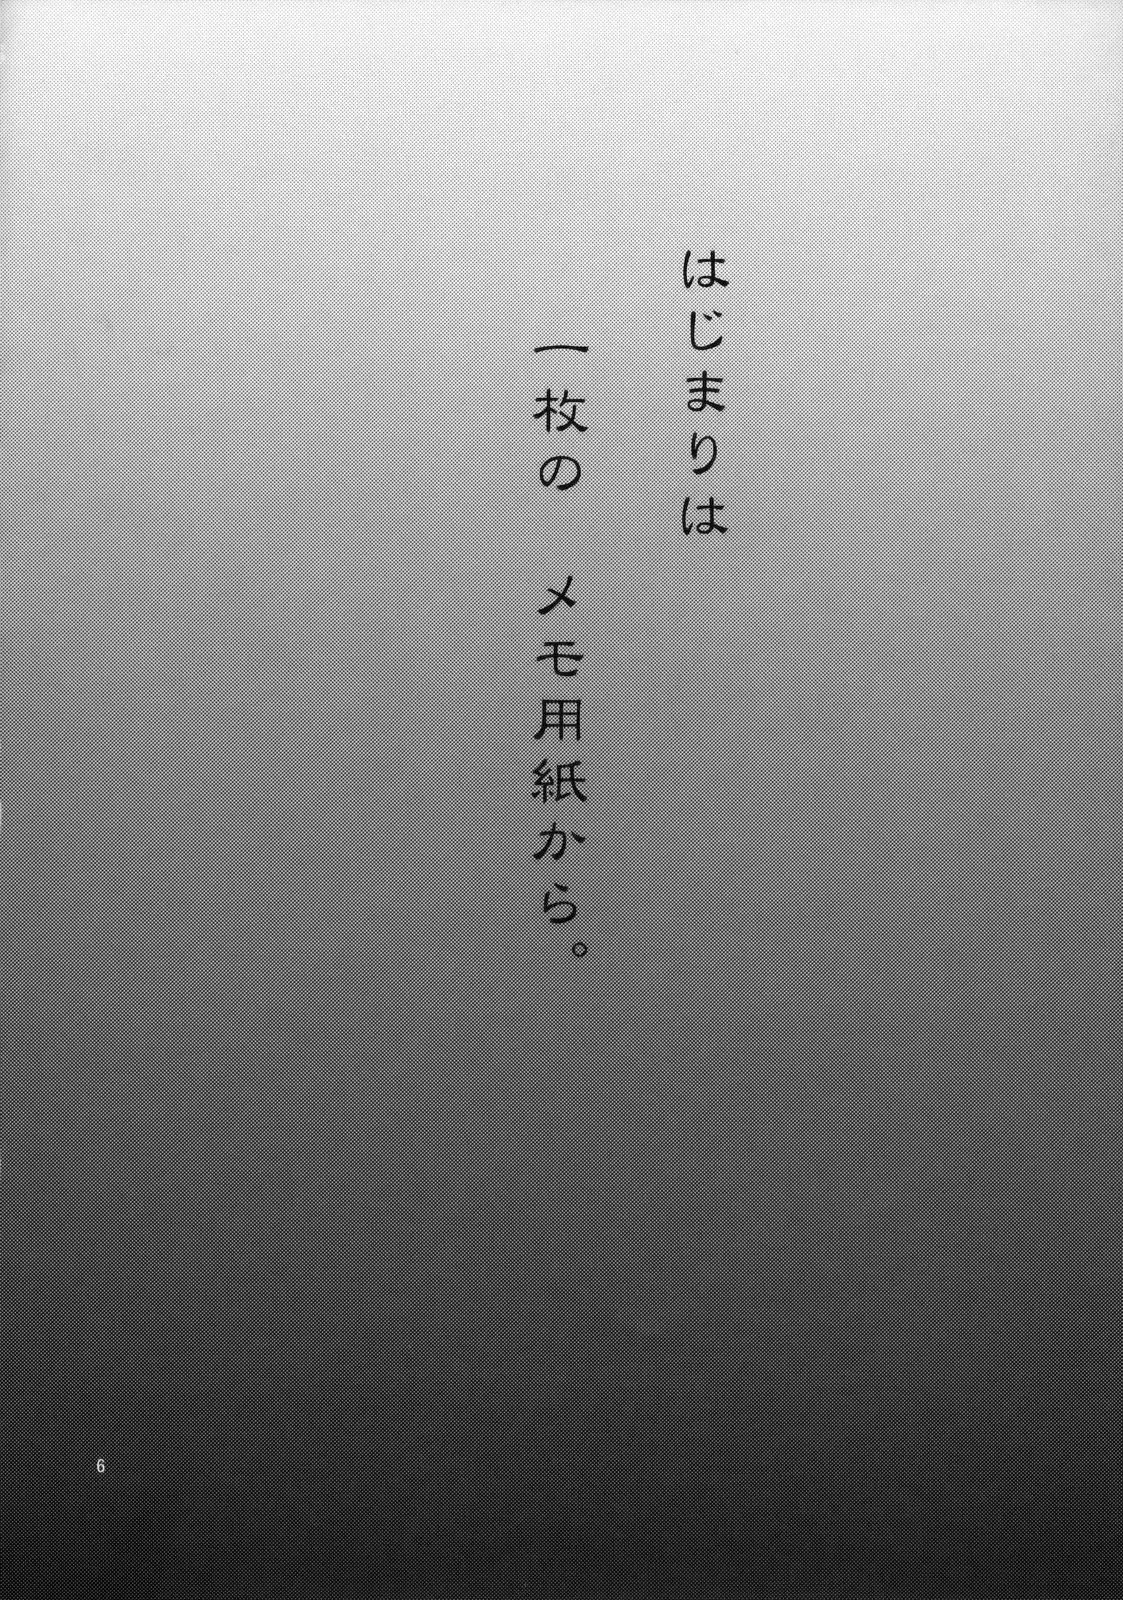 はじまりは
一枚の　メモ用紙から。
6